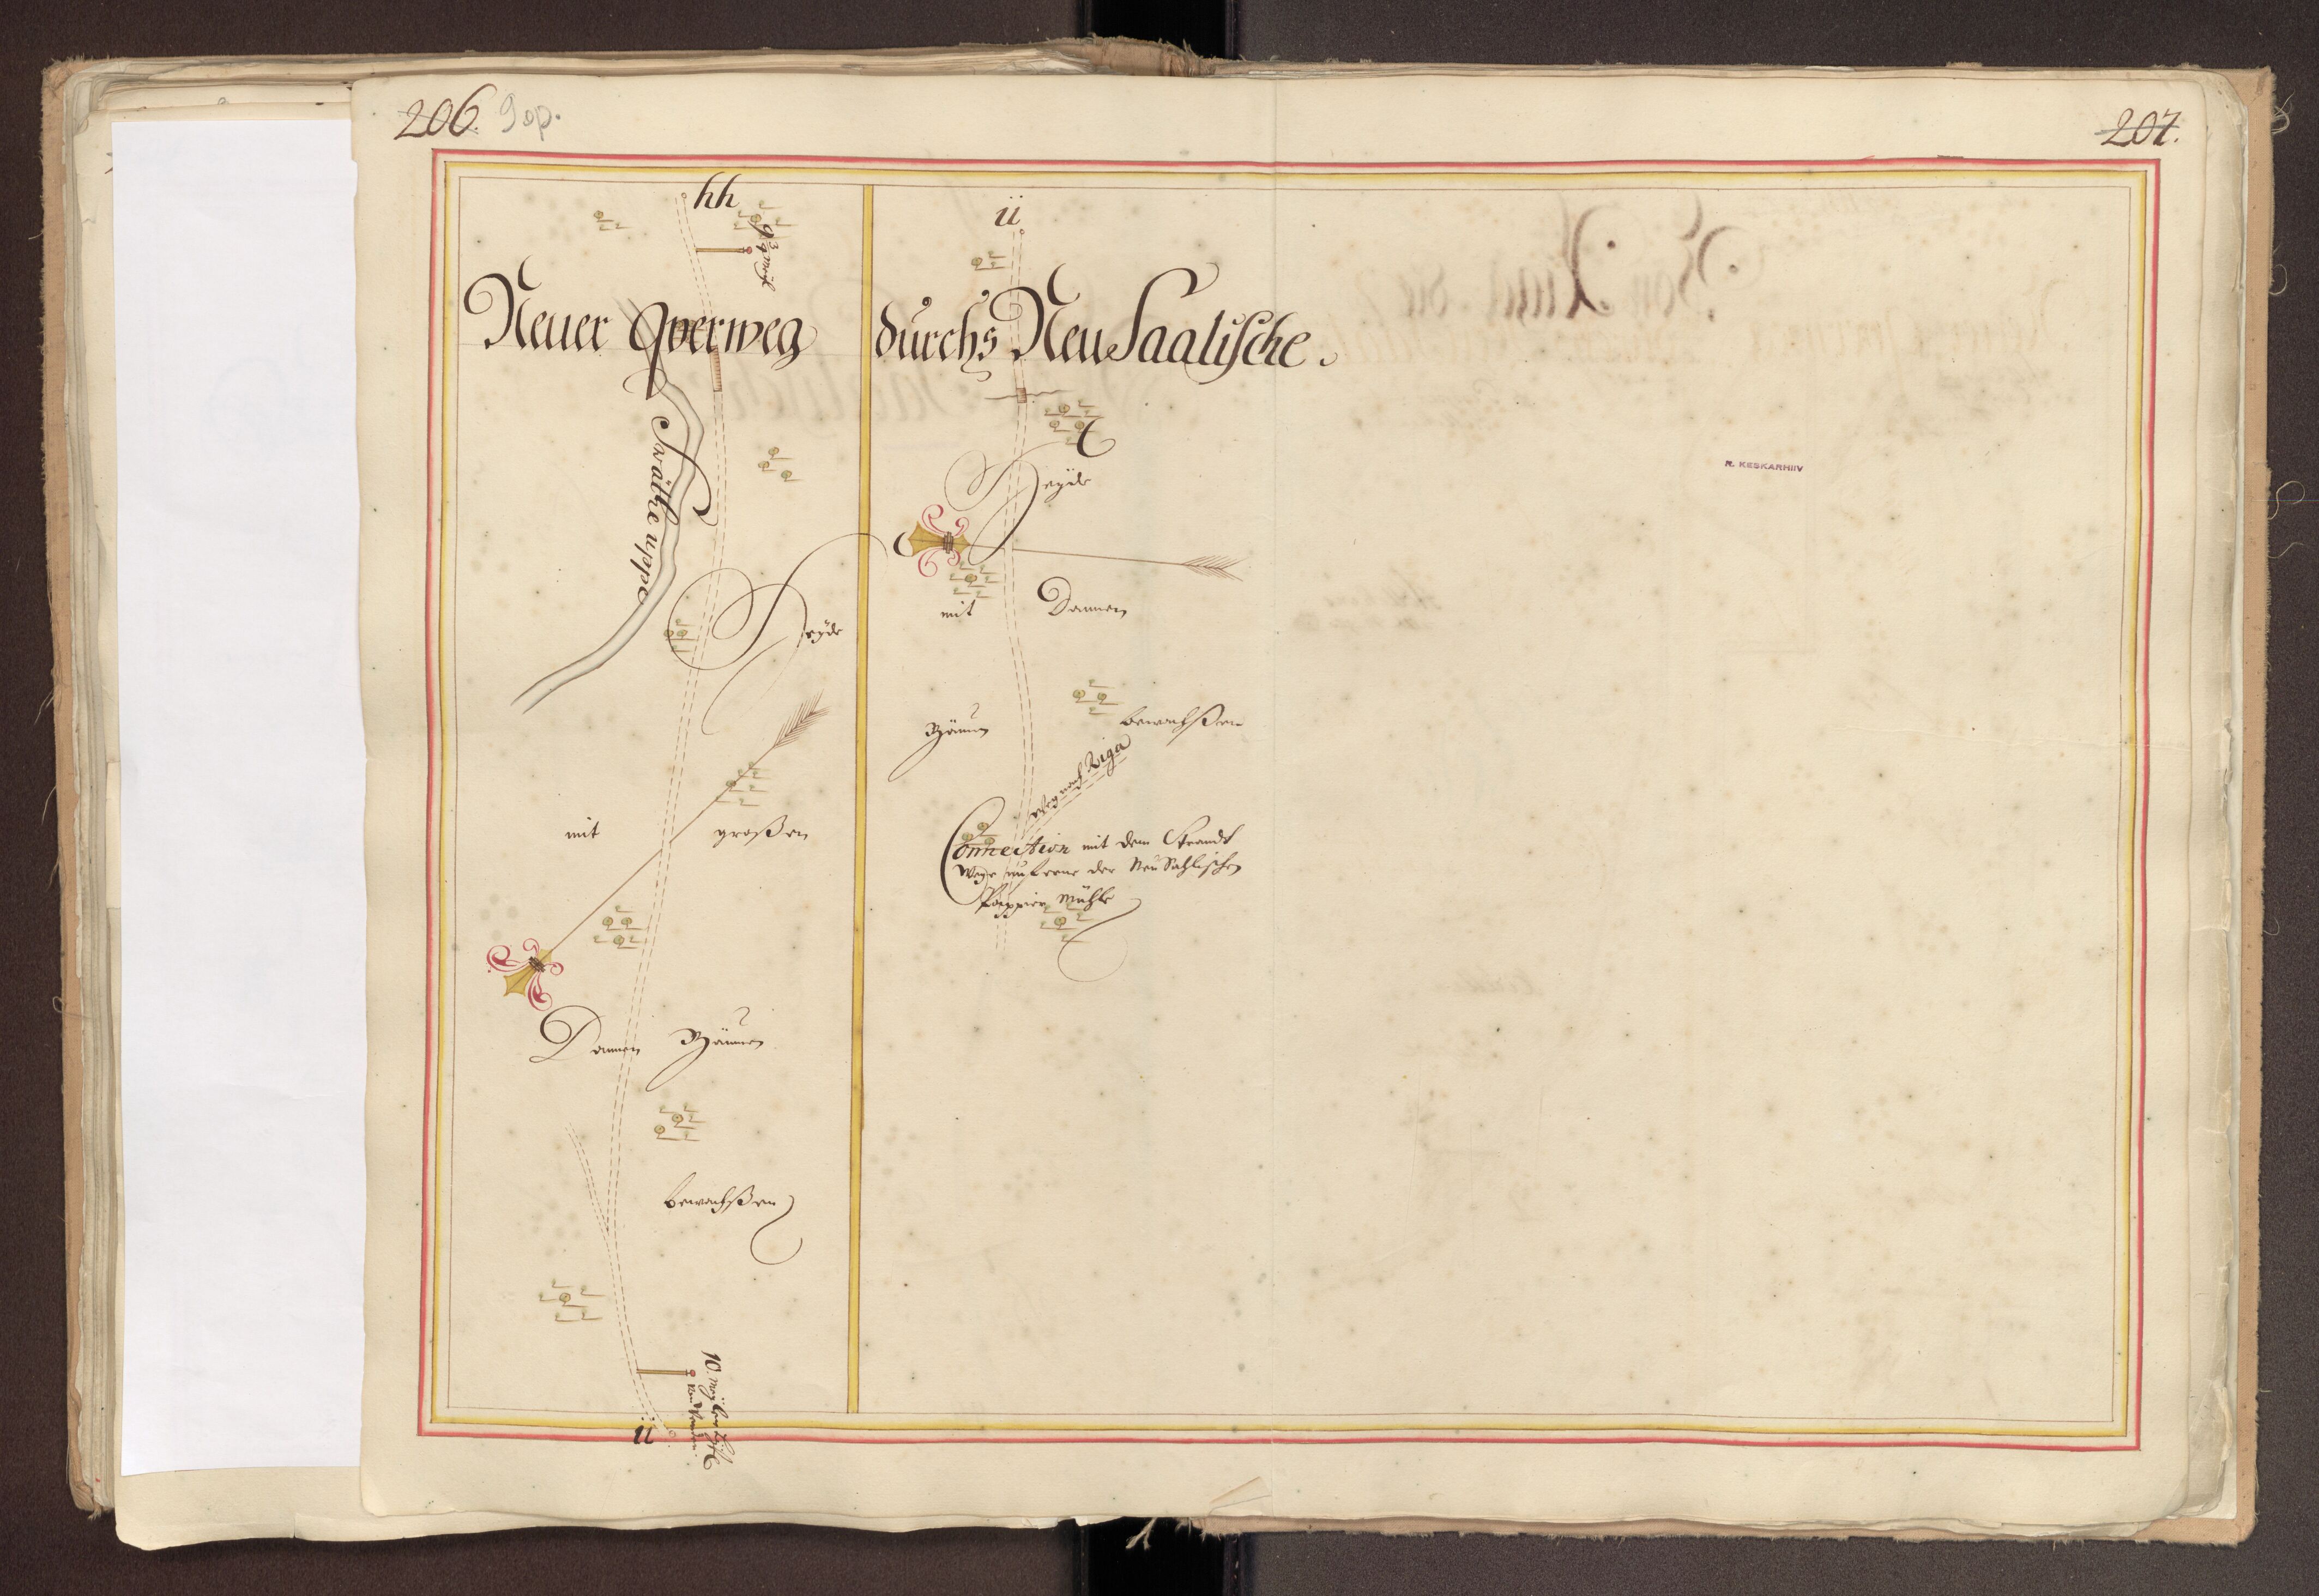 206. 90p.
207.
hh
9 3/4 meyl
Neuer Qverweg durchs Neu Saalische.
Swäthe uppe
Heyde
mit großen
Dannen Bäumen
bewachßen
10. meyl
ii
ii
Heyde
mit Dannen
Bäumen bewachßen
Weg nach Riga
Connection mit dem Strandt
Wege unferne der Neu Sahlischen
Pappier Mühle
R. KESKARHIIV